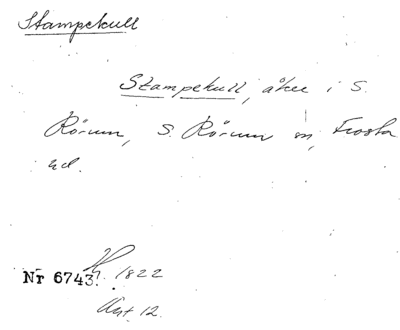 Stampekull
Stampekull, åker i S.
Rörum, S. Rörum sn, Frosta
hd.
Nr 6743. 1822
Akt 12.